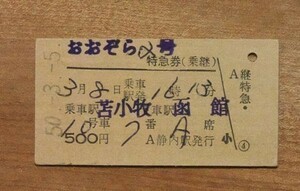 おおぞら2号
50.-3.-5
特急券(乗継)
3月8日 乗車駅発 16時13分
乗車駅 苫小牧 函館
10号車 7番 A席
500円 A静内駅発行
A 継特急・
小 ④